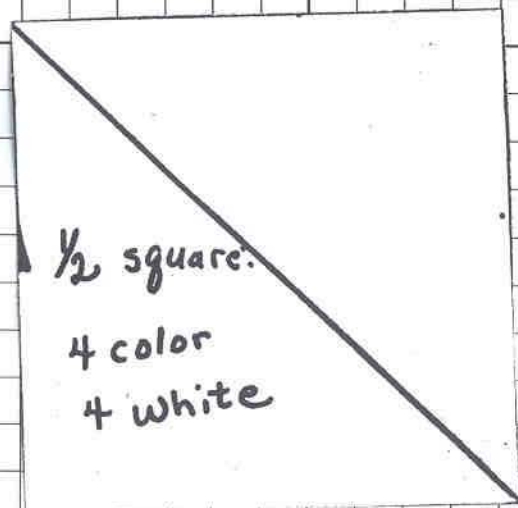 ½ square:
4 color
4 white